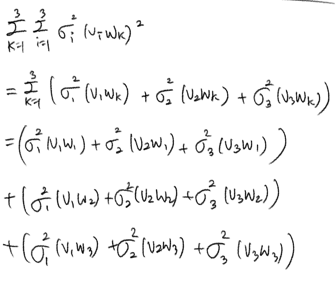 3 3
Σ Σ σᵢ² (vᵢwₖ)²
K=1 i=1
3
= Σ (σ₁² (v₁wₖ) + σ₂² (v₂wₖ) + σ₃² (v₃wₖ))
K=1
= (σ₁² (v₁w₁) + σ₂² (v₂w₁) + σ₃² (v₃w₁))
+ (σ₁² (v₁w₂) + σ₂² (v₂w₂) + σ₃² (v₃w₂))
+ (σ₁² (v₁w₃) + σ₂² (v₂w₃) + σ₃² (v₃w₃))